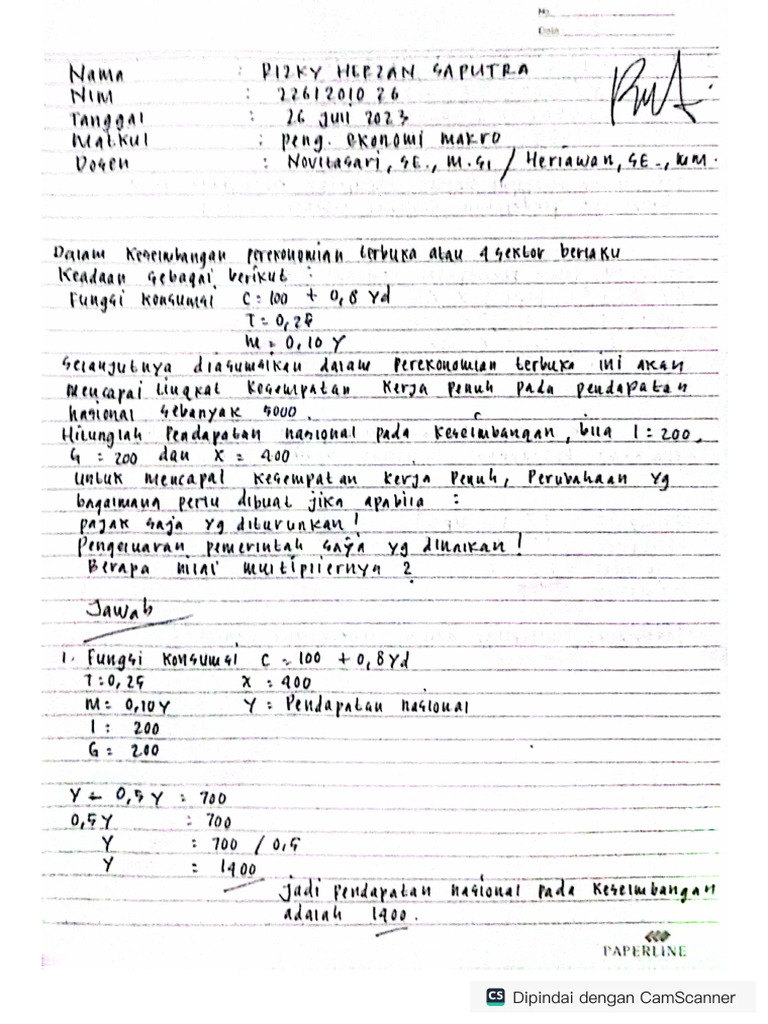 No.
Date
Nama : RIZKY HERZAN SAPUTRA
NIM : 2261201026
Tanggal : 26 Juli 2023
Matkul : peng. ekonomi makro
Dosen : Novitasari, SE., M.Si / Heriawan, SE., MM.
Dalam Keseimbangan perekonomian terbuka atau 4 sektor berlaku
Keadaan sebagai berikut :
Fungsi Konsumsi C = 100 + 0,8 Yd
T = 0,25
M = 0,10 Y
Selanjutnya diasumsikan dalam Perekonomian terbuka ini akan
Mencapai tingkat Kesempatan Kerja Penuh pada pendapatan
nasional sebanyak 5000.
Hitunglah Pendapatan nasional pada Keseimbangan, bila I = 200,
G = 200 dan X = 400
Untuk mencapai Kesempatan Kerja Penuh, Perubahaan Yg
bagaimana perlu dibuat jika apabila :
pajak saja yg diturunkan !
Pengeluaran pemerintah saja yg dinaikan !
Berapa nilai multipliernya ?
Jawab
1. Fungsi Konsumsi C = 100 + 0,8 Yd
T = 0,25 X = 400
M = 0,10 Y Y = Pendapatan nasional
I = 200
G = 200
Y - 0,5 Y = 700
0,5 Y = 700
Y = 700 / 0,5
Y = 1400
Jadi pendapatan nasional pada Keseimbangan
adalah 1400.
PAPERLINE
CS Dipindai dengan CamScanner